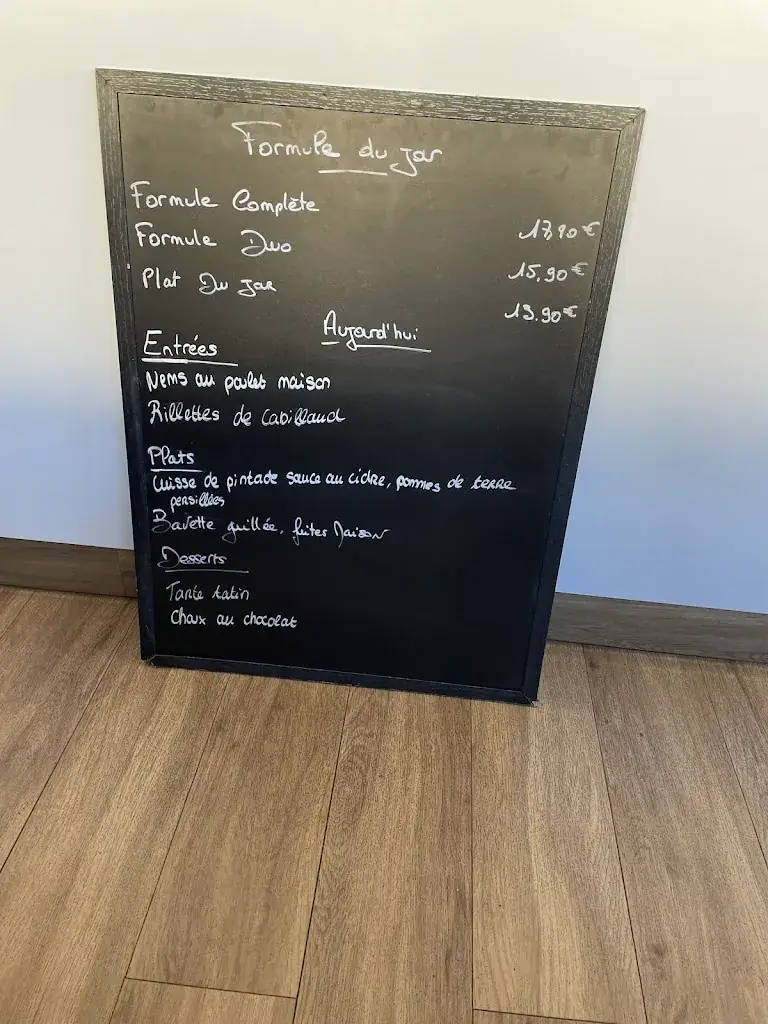 Formule du jor
Formule Complète 17,90€
Formule Duo 15,90€
Plat Du jor 13.90€
Aujourd'hui
Entrées
Nems au poulet maison
Rillettes de Cabillaud
Plats
Cuisse de pintade sauce au cidre, pommes de terre
persillées
Bavette grillée, frites Maison
Desserts
Tarte tatin
Choux au chocolat